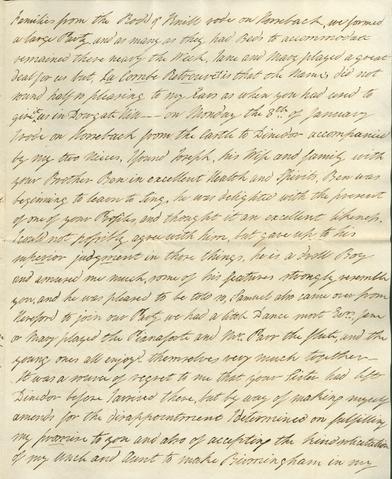 Families from the Rodd & Knill rode on Horseback, we formed
a large Party, and as many as they had Beds to accommodate
remained there nearly the Week, Jane and Mary played a great
deal for us but, La Combe that old Name, did not
sound half so pleasing to my Ears as when you had used to
give us in Dowgate Hill — on Monday the 8th. of January
I rode on Horseback from the Earth to Dindor accompanied
by my two Nieces, found Joseph, his Wife and family with
your Brother Ben in excellent Health and Spirits, Ben was
beginning to learn to sing, he was delighted with the present
of one of your Profiles and thought it an excellent likeness.
I could not possibly agree with him, but gave up to his
superior judgment in those things, he is a droll Boy
and amused me much, some of his features strongly resemble
you, and he was pleased to be told so, Samuel also came over from
Hereford to join our Party we had a little Dance most Eves. Jane
or Mary played the Pianoforte and Mr. Parr the flute, and the
young ones all enjoy'd themselves very much together —
It was a source of regret to me that your Sister had left
Dindor before I arrived there, but by way of making myself
amends for the disappointment I determined on fulfilling
my promise to you and also of accepting the kind invitation
of my Uncle and Aunt to make Birmingham in my